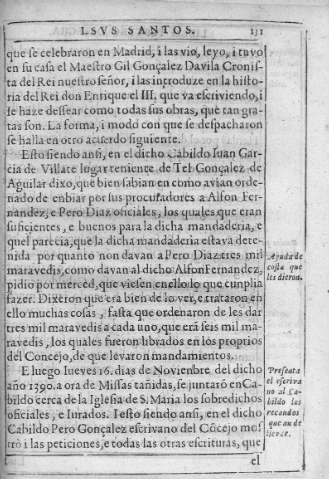 I SVS SANTOS. 131
que se celebraron en Madrid, i las vio, leyo, i tuvo
en su casa el Maestro Gil Gonçalez Davila Cronis-
ta del Rei nuestro señor, i las introduze en la histo-
ria del Rei don Enrique el III, que va escriviendo, i
se haze dessear como todas sus obras, que tan gra-
tas son. La forma, i modo con que se despacharon
se halla en otro acuerdo siguiente.
Esto siendo ansi, en el dicho Cabildo Iuan Gar-
cia de Villate lugar teniente de Tel Gonçalez de
Aguilar dixo, que bien sabian en como avian orde-
nado de enbiar por sus procuradores a Alfon Fer-
nandez, e Pero Diaz oficiales, los quales que eran
suficientes, e buenos para la dicha mandaderia, e
quel parecia, que la dicha mandaderia estava dete-
nida por quanto non davan a Pero Diaz tres mil
maravedis, como davan al dicho Alfon Fernandez,
pidio por merced, que viesen en ello lo que cunplia
fazer. Dixeron que era bien de lo ver, e trataron en
ello muchas cosas, fasta que ordenaron de les dar
tres mil maravedis a cada uno, que era seis mil ma-
ravedis, los quales fueron librados en los proprios
del Concejo, de que levaron mandamientos.
E luego Iueves 16. dias de Noviembre del dicho
año 1390. a ora de Missas tañidas, se juntarõ en Ca-
bildo cerca de la Iglesia de S. Maria los sobredichos
oficiales, e Iurados. I esto siendo ansi, en el dicho
Cabildo Pero Gonçalez escrivano del Cõcejo mos-
trò i las peticiones, e todas otras escrituras, que
el
Ayuda de
costa que
les dieron.
Presenta
el escriva
no al Ca-
bildo los
recaudos
que an de
llevar.